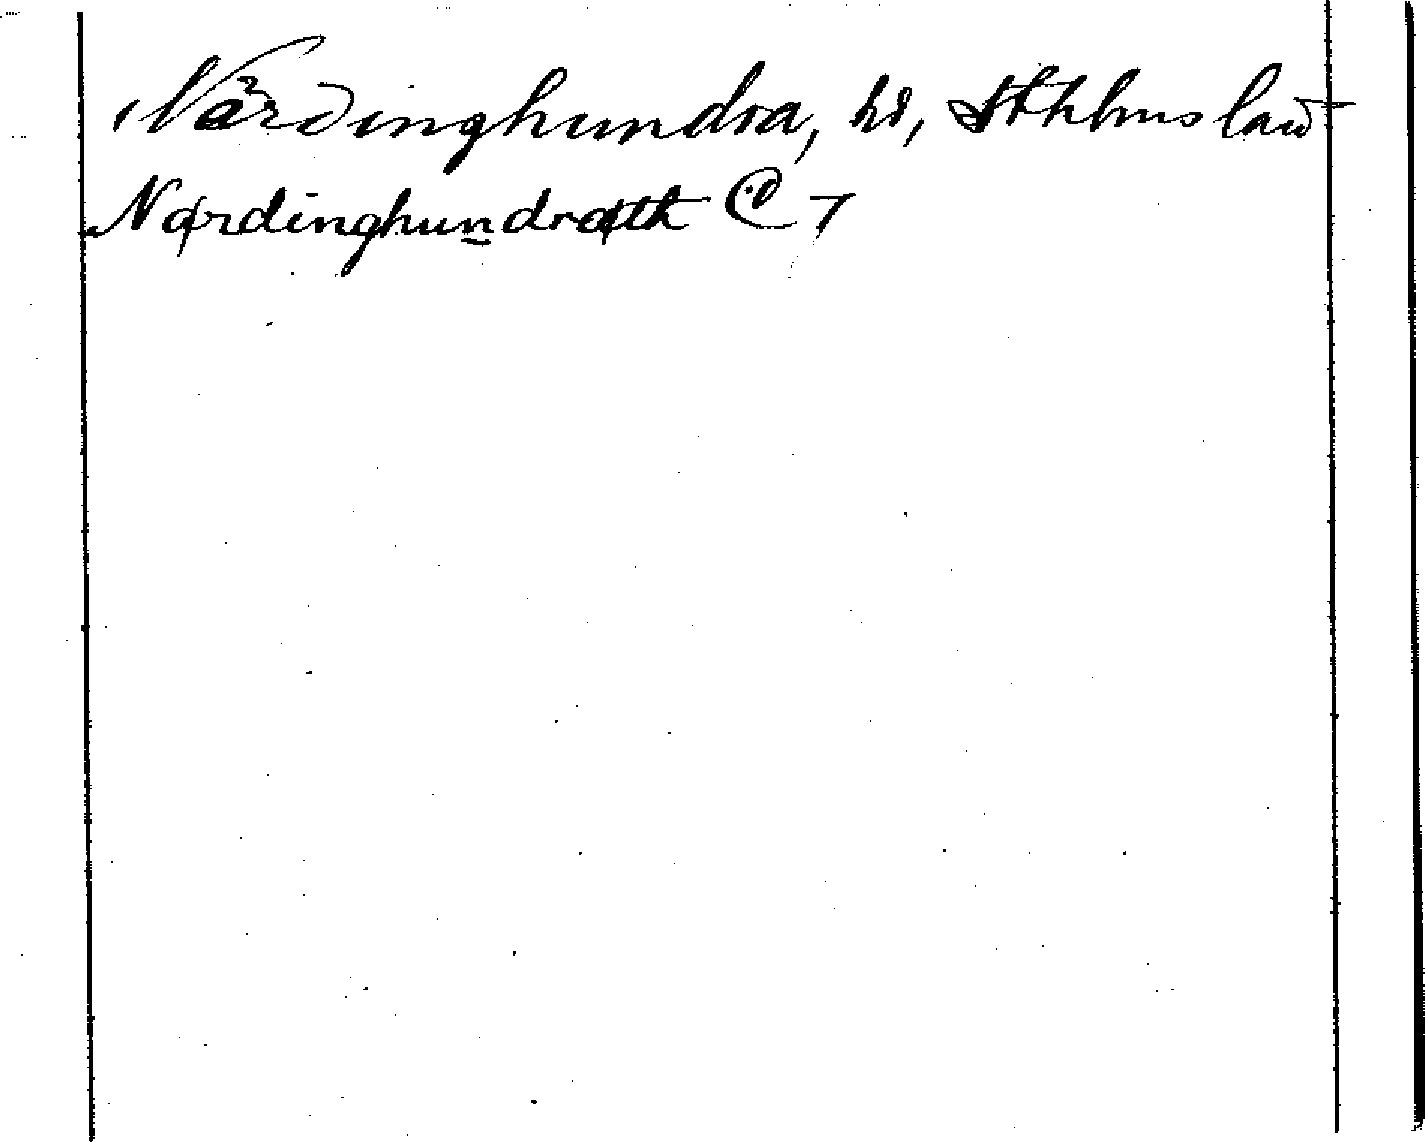 Närdinghundra, hd, Sthlms län
Nærdinghundræth C 7